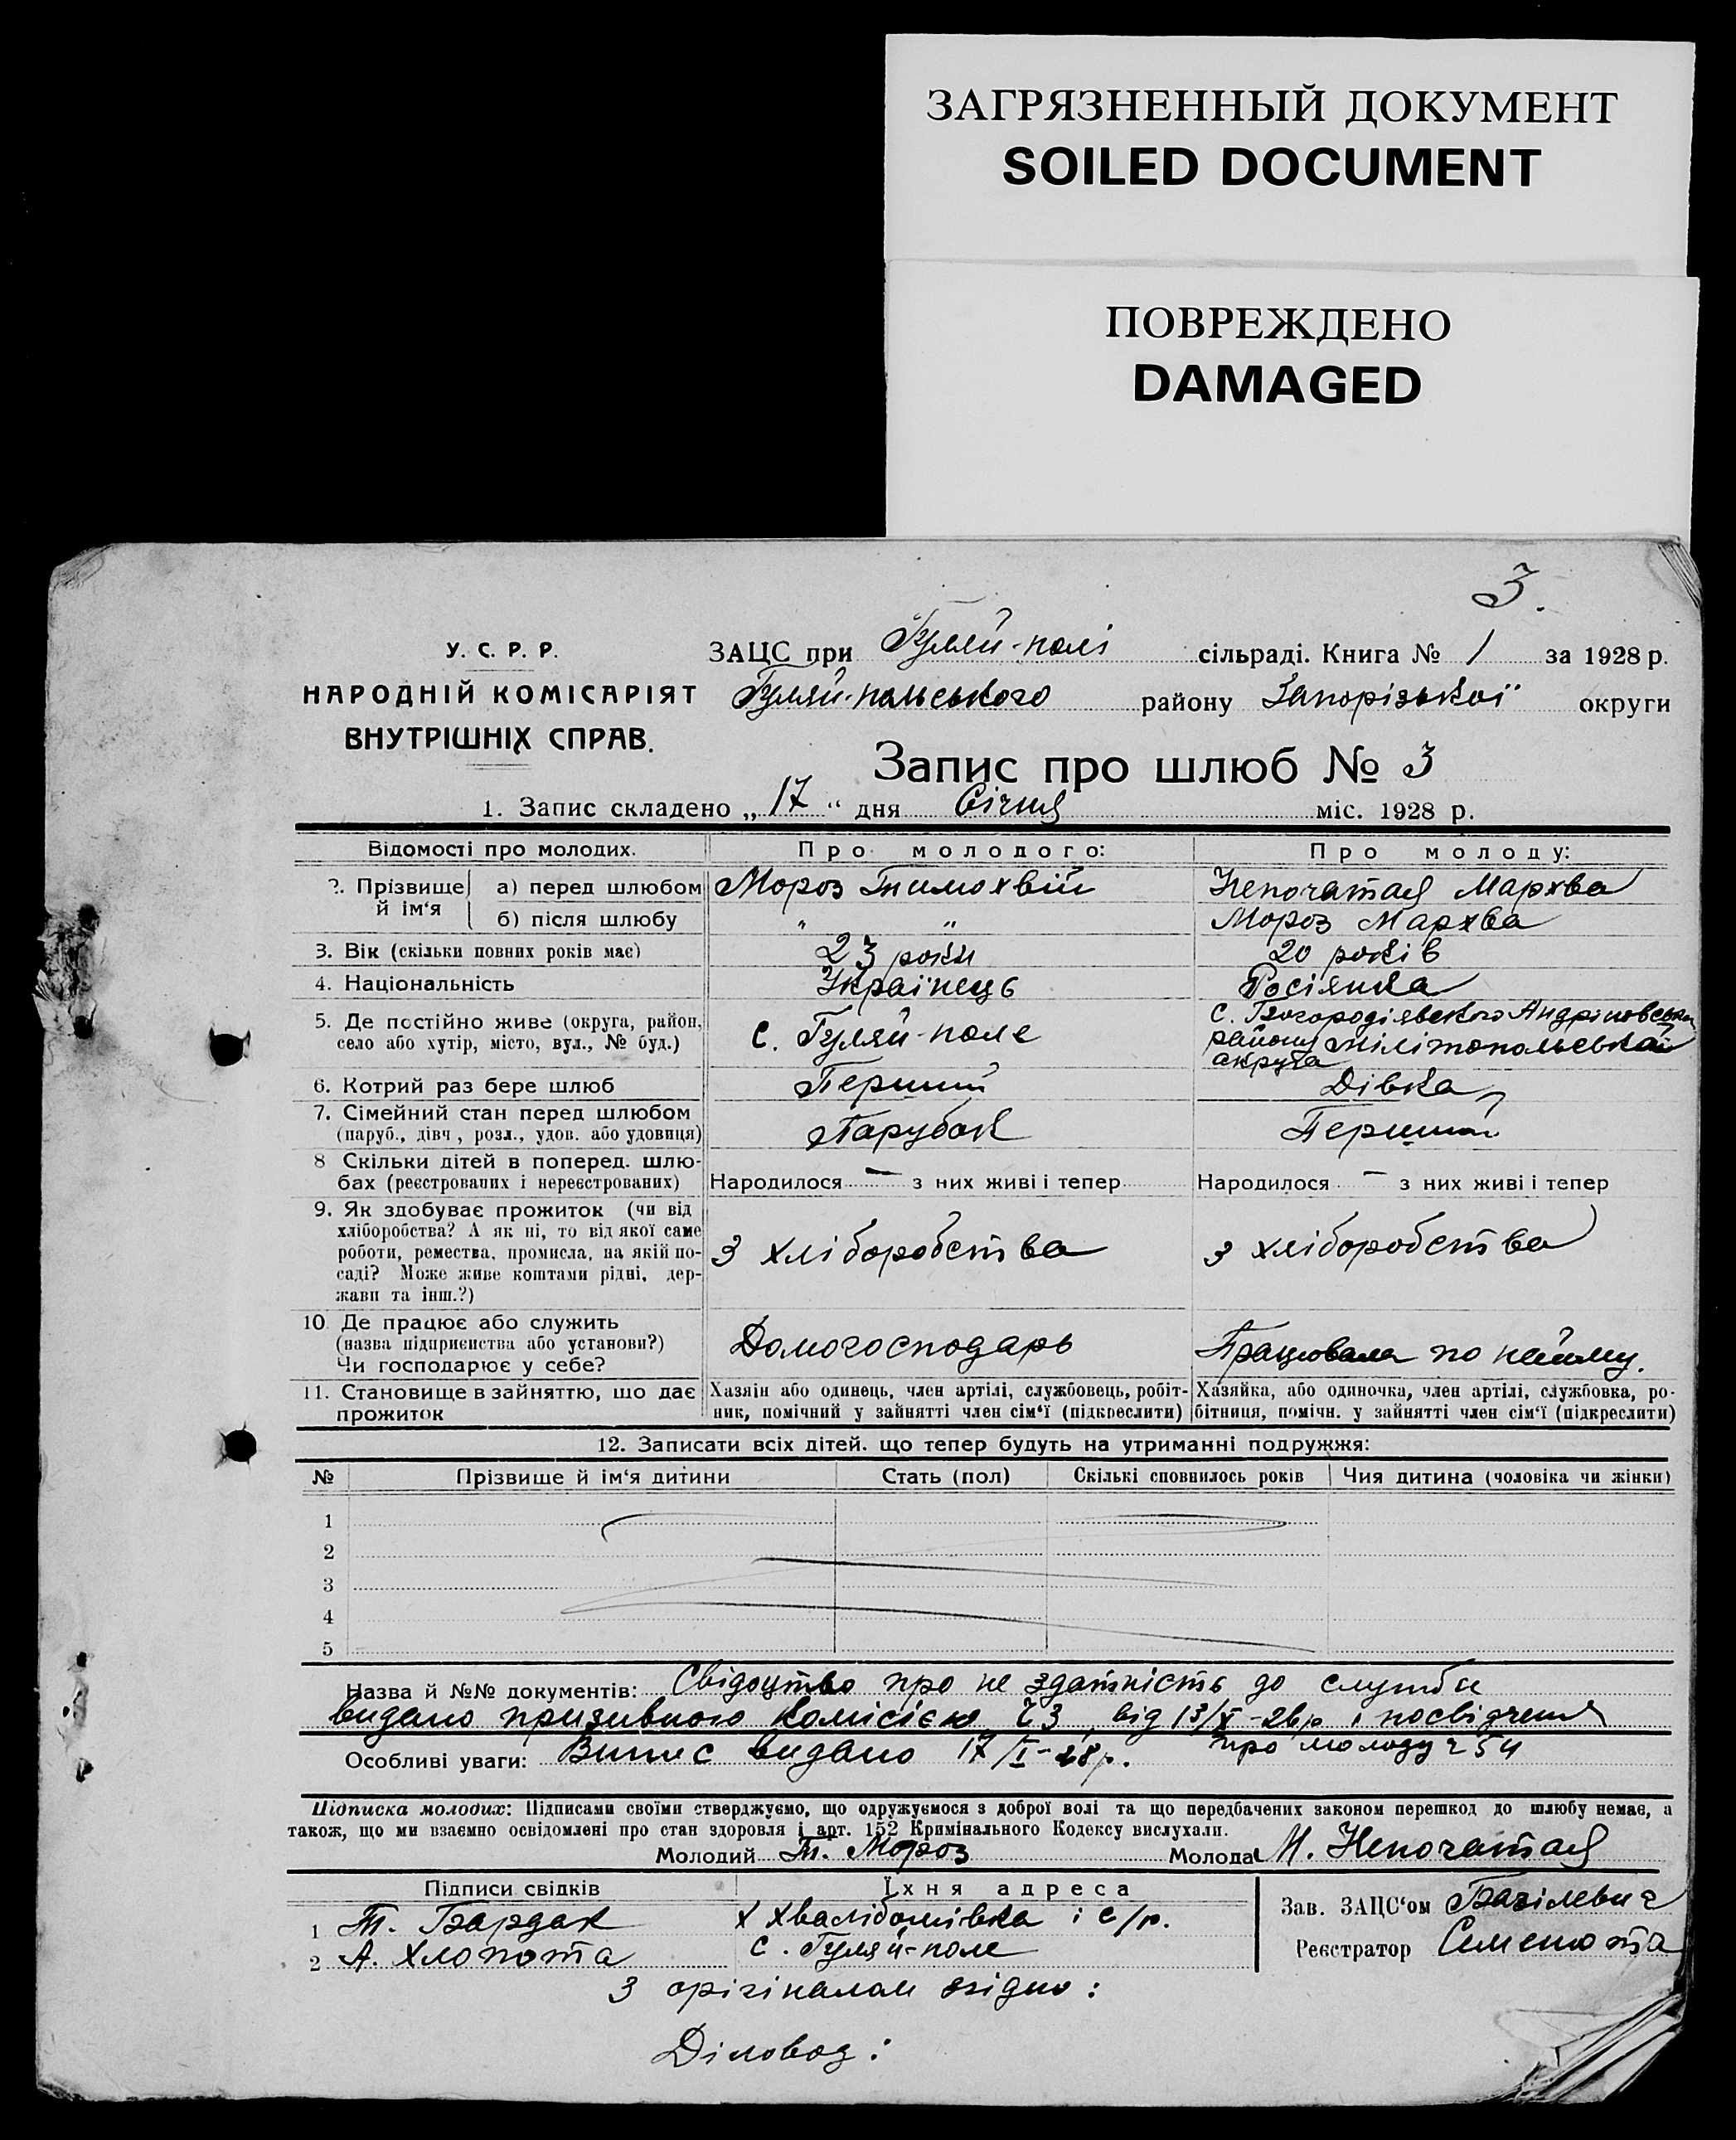 ЗАГРЯЗНЕННЫЙ ДОКУМЕНТ
SOILED DOCUMENT
ПОВРЕЖДЕНО
DAMAGED
3.
У. С. Р. Р.
НАРОДНІЙ КОМІСАРІЯТ
ВНУТРІШНІХ СПРАВ.
ЗАЦС при Гуляй-полі сільраді. Книга № 1 за 1928 р.
Гуляй-польського району Запорізької округи
Запис про шлюб № 3
1. Запис складено „ 17 “ дня Січня міс. 1928 р.
Відомості про молодих. Про молодого: Про молоду:
2. Прізвище й ім‘я а) перед шлюбом Мороз Тимохвій Непочатая Мархва
б) після шлюбу " " Мороз Мархва
3. Вік (скільки повних років має) 23 роки 20 років
4. Національність Українець Росіянка
5. Де постійно живе (округа, район, село або хутір, місто, вул., № буд.) с. Гуляй-поле с. Богородіявского Андріновськ району Мілітопольськой округа
6. Котрий раз бере шлюб Перший Дівка
7. Сімейний стан перед шлюбом (паруб., дівч., розл., удов. або удовиця) Парубок Перший
8 Скільки дітей в поперед. шлюбах (реєстрованих і нереєстрованих) Народилося — з них живі і тепер Народилося — з них живі і тепер
9. Як здобуває прожиток (чи від хліборобства? А як ні, то від якої саме роботи, ремества, промисла, на якій посаді? Може живе коштами рідні, держави та інш.?) З хліборобства З хліборобства
10. Де працює або служить (назва підприємства або установи?) Чи господарює у себе? Домогосподарь Працювала по найму.
11. Становище в зайняттю, що дає прожиток Хазяїн або одинець, член артілі, службовець, робітник, помічний у зайнятті член сім‘ї (підкреслити) Хазяйка, або одиночка, член артілі, службовка, робітниця, помічн. у зайнятті член сім‘ї (підкреслити)
12. Записати всіх дітей. що тепер будуть на утриманні подружжя:
№ Прізвище й ім‘я дитини Стать (пол) Скількі сповнилось років Чия дитина (чоловіка чи жінки)
1
2
3
4
5
Назва й №№ документів: Свідоцтво про не здатність до служби
видано призивною комісією Ч3, від 13/X-26р і посвідчення
про молоду ч 54
Особливі уваги: Випис видано 17/I-28р.
Підписка молодих: Підписами своїми стверджуємо, що одружуємося з доброї волі та що передбачених законом перешкод до шлюбу немає, а
також, що ми взаємно освідомлені про стан здоровля і арт. 152 Кримінального Кодексу вислухали.
Молодий Т. Мороз Молода М. Непочатая
Підписи свідків Їхня адреса
1 Т. Бардак х Хвалібонівка і с/р.
2 А. Хлопота с. Гуляй-поле
Зав. ЗАЦС‘ом Базілевич
Реєстратор Семенота
З орігіналом згідно:
Діловод: